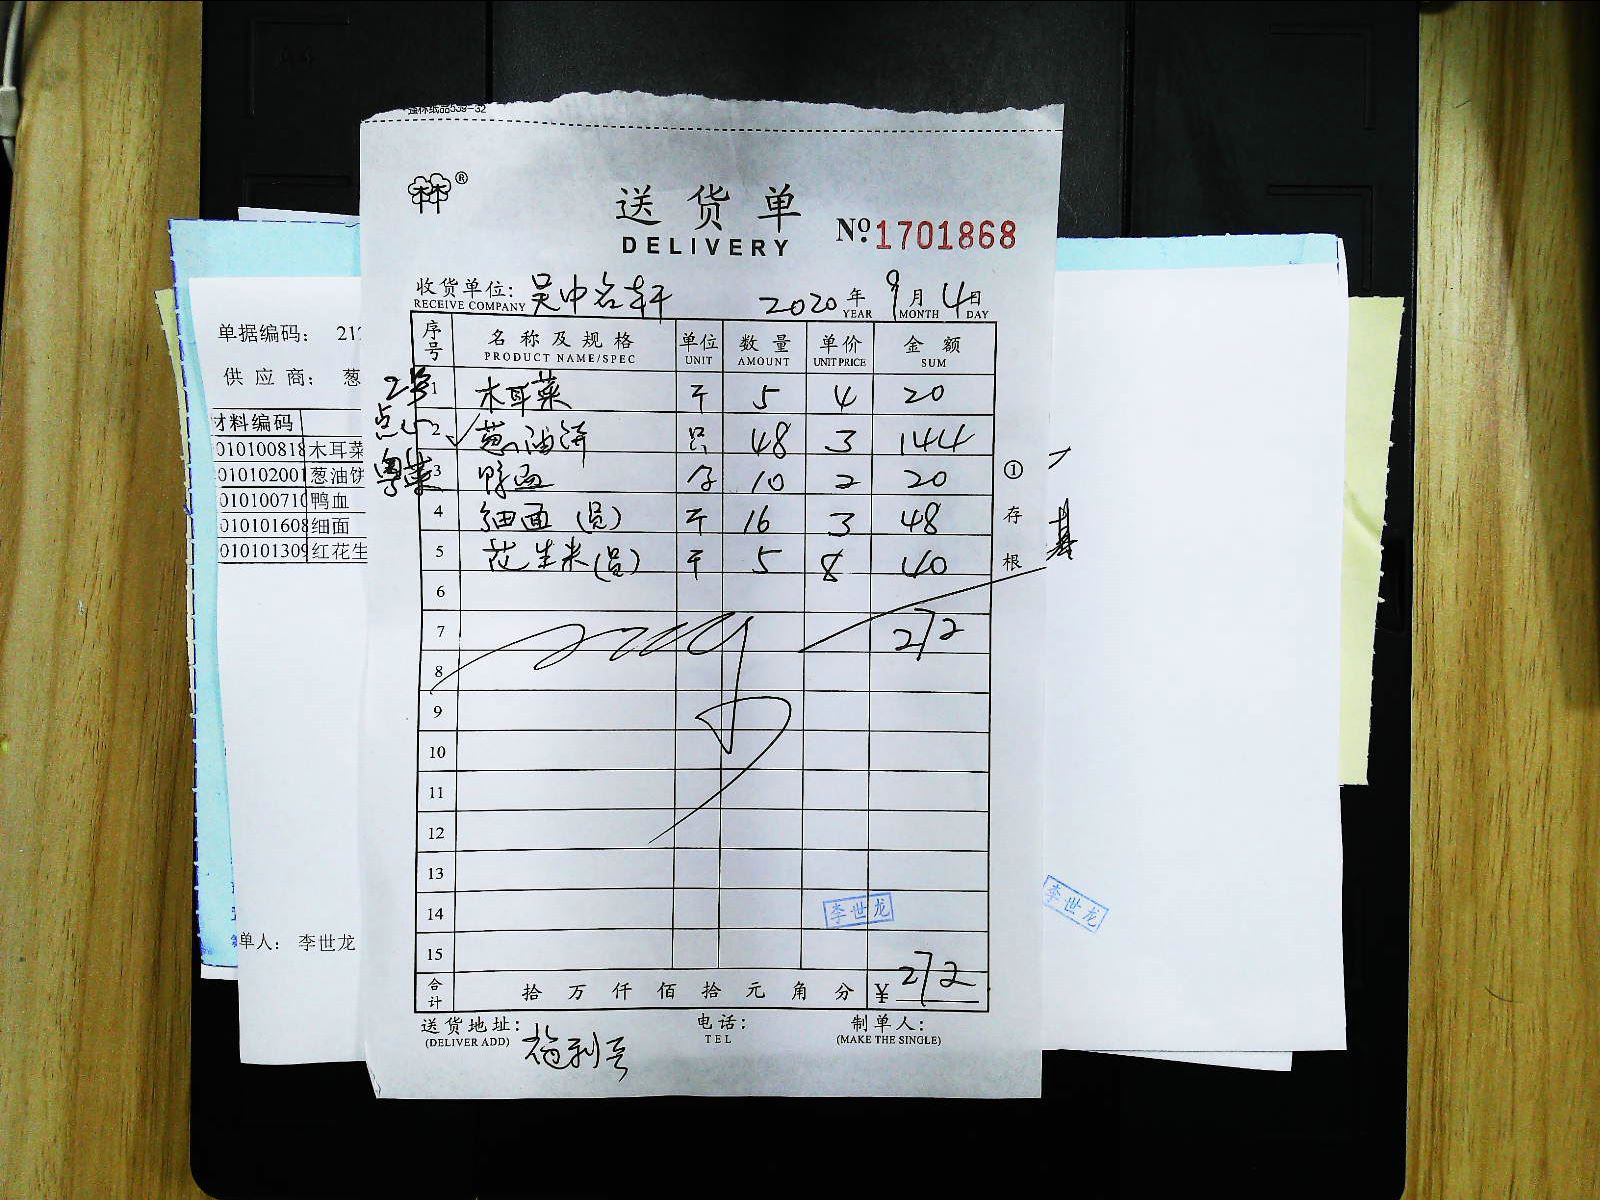 强林纸品539-32
®
送货单
DELIVERY
No. 1701868
收货单位: 吴中名轩 2020年 9月 4日
RECEIVE COMPANY YEAR MONTH DAY
序号 名称及规格 单位 数量 单价 金额
PRODUCT NAME/SPEC UNIT AMOUNT UNIT PRICE SUM
1 木耳菜 千 5 4 20
点心
2 葱油饼 只 48 3 144
粤菜
3 鸭血 10 2 20
4 细面(员) 千 16 3 48
5 花生米(员) 千 5 8 40
6
7 272
8
9
10
11
12
13
14
15
李世龙
合计 拾万仟佰拾元角分 ¥ 272
送货地址: 电话: 制单人:
(DELIVER ADD) TEL (MAKE THE SINGLE)
①存根
单据编码: 21
供应商: 葱
材料编码
010100818 木耳菜
010102001 葱油饼
010100710 鸭血
010101608 细面
010101309 红花生
单人: 李世龙
李世龙